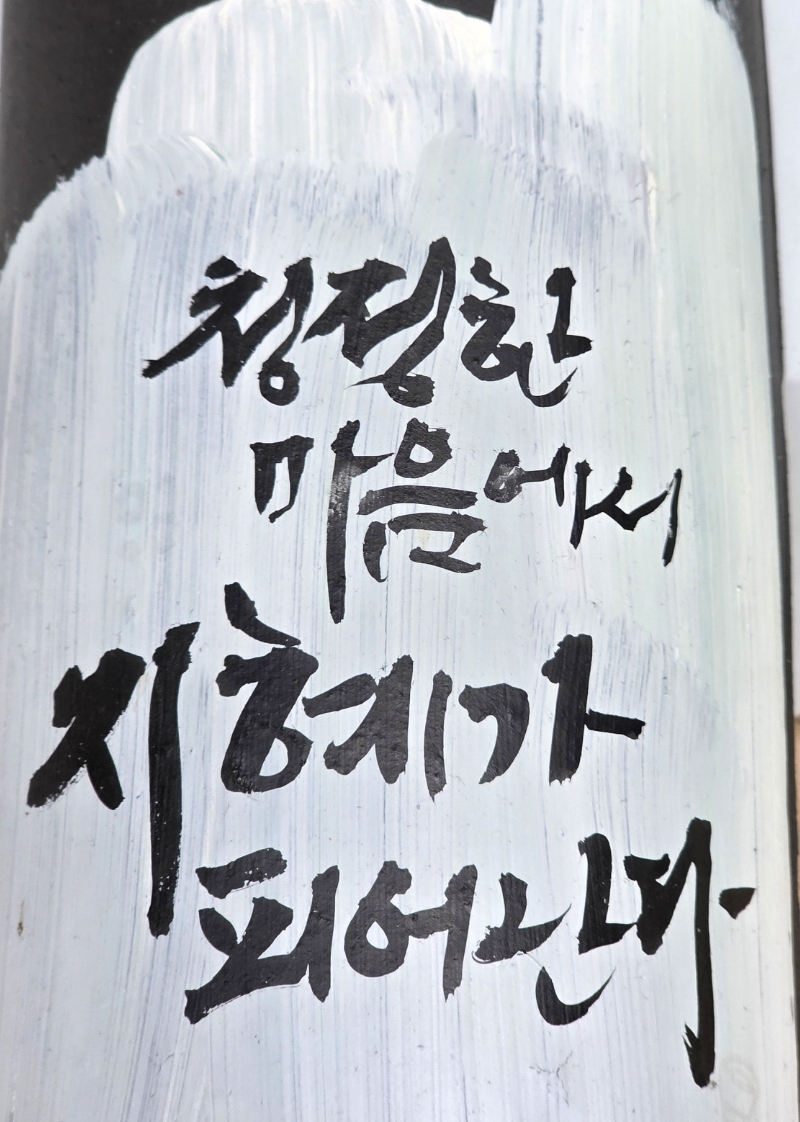 청정한
마음에서
지혜가
피어난다